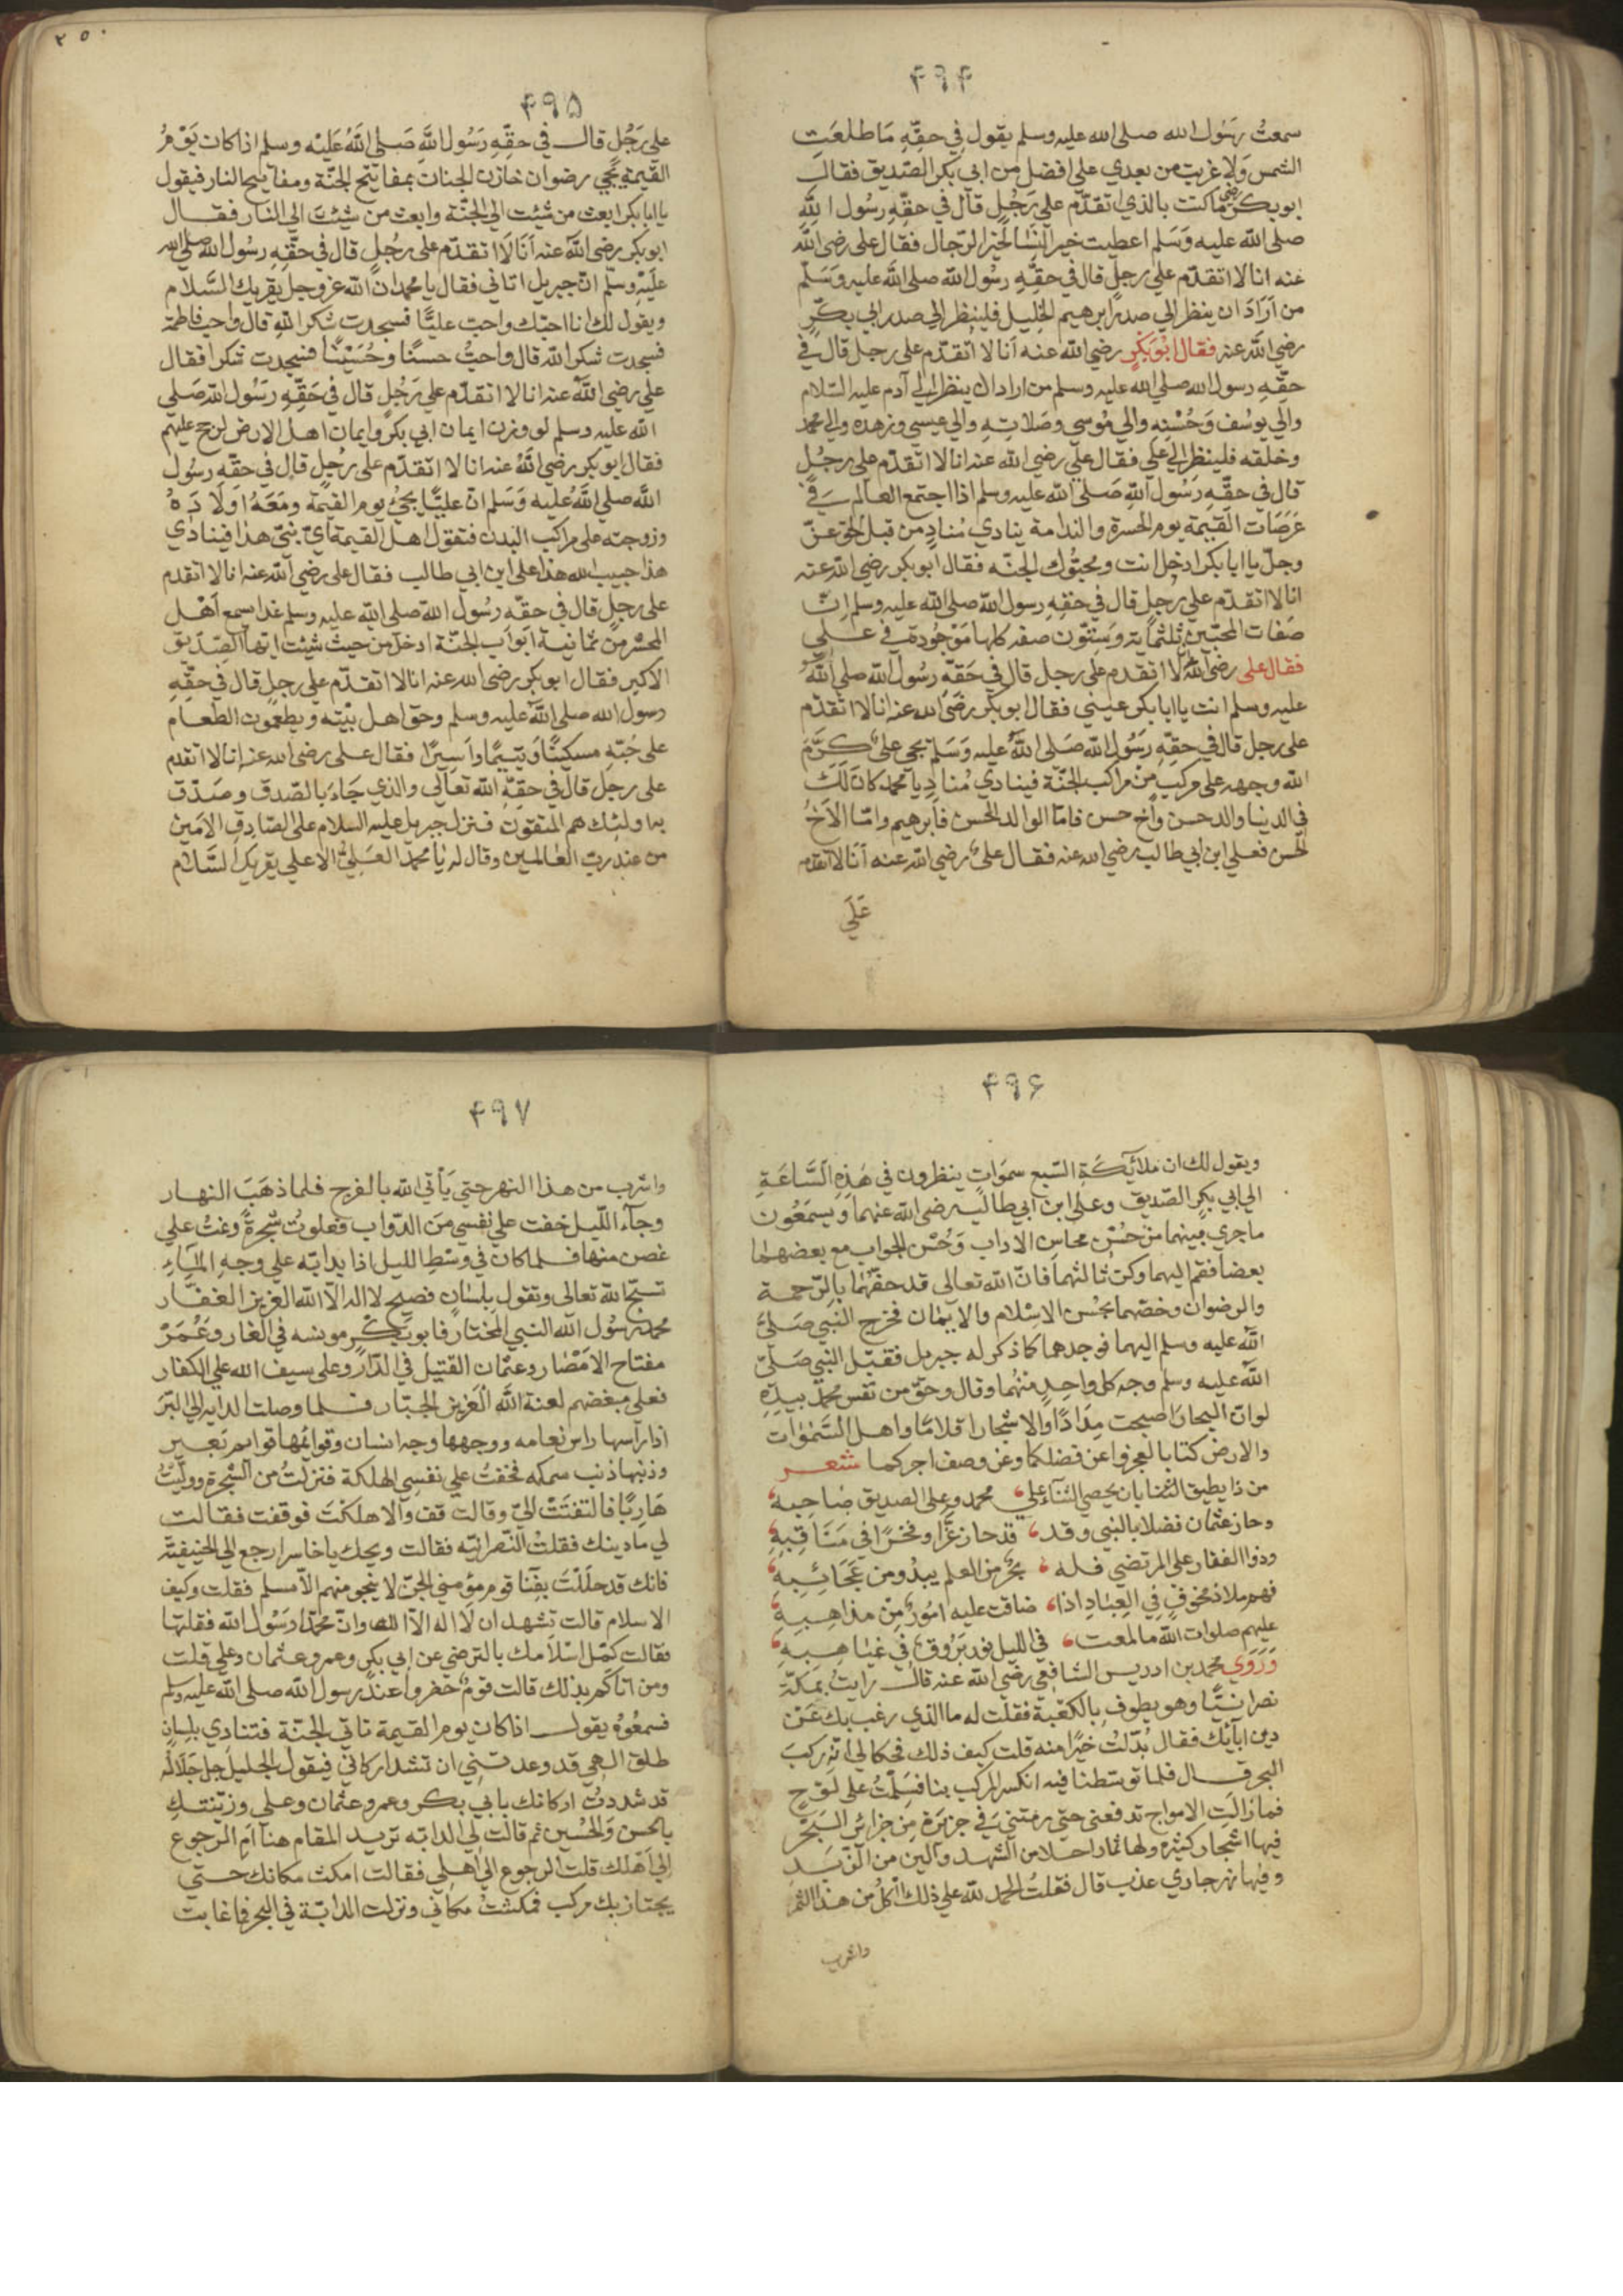 ۴۹۴
سمعتُ رسُول الله صلى الله عليه وسلم يقول في حقّهِ مَا طلعَت
الشمس وَلا غربت من بعدي على افضل من ابي بكر الصّديق فقال
ابوبكر رضي ما كنت بالذي اتقدّم على رَجُلٍ قال في حقّهِ رسُول اللهِ
صلى الله عليه وَسَلم اعطيت خير النسا لخير الرّجال فقال على رضى الله
عنه انا لا اتقدّم على رجلٍ قال في حقّهِ رسُول الله صلى الله عليه وَسَلّم
من اَرَادَ ان ينظر الي صدر ابرهيم الخليل فلينظر الي صدر ابي بكرٍ
رضي الله عنه فقال ابُوبَكرٍ رضي الله عنه اَنا لا اتقدّم على رجل قال في
حقّهِ رسول الله صلي الله عليه وسلم من اراد ان ينظر الي آدم عليه السّلام
والي يوسُف وَحُسْنِهِ والي مُوسي وصَلاتِهِ والي عيسي وزهده والي محمّد
وخلقه فلينظر الي علي فقال علي رضي الله عنه انا لا اتقدّم على رجُلٍ
قال في حقّهِ رَسُول اللهِ صَلى الله عليه وسلم اذا اجتمع العالم في
عَرَصَات القيٰمة يوم الحسرة والندامة ينادي مُنادٍ من قبل الحق عزّ
وجلّ يا ابا بكر ادخل انت ومحبّوك الجنّه فقال ابوبكر رضى الله عنه
انا لا اتقدّم على رجلٍ قال في حقّهِ رسول الله صلى الله عليه وسلم اِنّ
صفات المحبّين ثلثمايه وَسِتّون صفه كلها مَوْجُودة في عـلي
فقال على رضى الله عنه لا اتقدم على رجل قال في حَقّهِ رسُول الله صلى الله
عليه وسلم انت يا ابا بكر عيني فقال ابوبكر رضَى الله عنه انا لا اتقدّم
على رجل قال في حقّهِ رَسُول الله صَلى اللهُ عليه وَسَلم يجي علىٌ كرَّمَ
الله وجهه على مركب منْ مراكب الجنّة فينادي مُنادٍ يا محمد كان لَكَ
في الدنيا والد حسن وأخ حسن فامّا الوالد الحسن فأبرهيم وامّا الاَخُ
الحسن فعلي ابن ابي طالب رضي الله عنه فقال علىٌ رضي الله عنه اَنا لا اتقدم
عَلَي
٢٥٠
۴۹۵
على رَجُلٍ قال في حقِّهِ رَسُول اللهِ صَلى اللهُ عَلَيْه وسلم اذا كان يَوْمُ
القيٰمة يَجي رضوان خازن الجنان بمفاتيح الجنّة ومفاتيح النار فيقول
يا ابا بكر ابعث من شئت الي الجنّة وابعث من شئتَ الي النار فقال
ابوبكر رضي الله عنه اَنَا لَا اتقدّم على رجُلٍ قال في حقّهِ رسُول الله صلى الله
عليْهِ وسلّم انّ جبريل اتاني فقال يا محمد ان الله عز وجل يقريك السّلام
ويقول لك انا احبّك واحبّ عليًّا فسجدت شكرا للهِ قال واحب فاطمة
فسجدت شكرا لله قال واحبُّ حسنًا وحُسَيْنًا فسجدت شكرا فقال
علي رضي الله عنه انا لا اتقدّم على رَجُلٍ قال في حَقّهِ رَسُول الله صَلي
الله عليه وسلم لو وزن ايمان ابي بكر وايمان اهل الارض لرجح عليهم
فقال ابوبكر رضي اللهُ عنه انا لا اتقدّم على رجُلٍ قال في حقّهِ رسُول
الله صلى اللهُ عليه وَسَلم انّ عليًّا يجئُ يوم القيٰمَة ومَعَهُ اَوْلَادَهُ
وزوجته على مراكب البُدن فتقول اهل القيمة ايّ نبيّ هذا فينادي
هذا حبيب الله هذا على ابن ابي طالب فقال على رضي الله عنه انا لا اتقدم
على رجلٍ قال في حقّهِ رسُول الله صلي الله عليه وسلم غدا يسمع اَهْل
المحشر من ثمانية ابوَاب الجنّة ادخل من حيث شئت ايها الصّدّيق
الاكبر فقال ابوبكر رضي الله عنه انا لا اتقدّم على رجلٍ قال في حقّهِ
رسول الله صلى الله عليه وسلم وحق اهل بيْته ويطعمون الطعام
على حُبّهِ مسكينًا وَيتيمًا واَسِيرًا فقال علي رضي الله عنه انا لا اتقدم
على رجلٍ قال في حقّهِ الله تعالى والذي جَاءَ بالصّدق وصَدّق
به اولئك هم المتّقون فنزل جبريل عليه السلام على الصّادق الاَمين
من عند ربّ العالمين وقال له يا محمد العَليُّ الاعلى يقريك السّلام
۴۹۶
ويقول لك ان ملآئكَةِ السّبع سموَاتٍ ينظرون في هٰذِهِ السَّاعَةِ
الي ابي بكرٍ الصّديق وعلى ابن ابي طالب رضى الله عنهما وَيسمَعُون
ما جري بينهما من حُسْن محاسِن الاداب وَحُسْن الجواب مع بعضهما
بعضا فقم اليهما وكن ثالثهما فانّ الله تعالى قد حفّهُما بالرّحمة
والرضوان وخصّهما بحُسْن الاسْلام والايمٰان فخرج النّبي صَلىّ
الله عليه وسلم اليهما فوجدهما كما ذكر له جبريل فقبّل النّبي صَلىّ
الله عليه وسلم وجه كل واحِدٍ منهُما وقال وحقّ من نفس محمدٍ بيدِهِ
لو انّ البحار اصبحت مِدَادًا والاشجار اقلامًا واهل السَّمٰوات
والارض كتابا لعجزوا عن فضلكما وعن وصف اجركما شعر
من ذا يطيق الثنا بان يحصي الثنآء على ، محمد وعلى الصديق صَاحِبه ،
وحاز عثمان فضلا بالنبي وقد ، قد حاز عزًّا وفخرًا في مَنَاقِبِهِ ،
وذوا الفقار على المرتضي فله ، بحرٌ من العلم يبدُو من عَجَائِبِهِ ،
فهم ملاذ مخوّفٍ في العِبادِ اذا ، ضاقت عليه امُورٌ مِنْ مذاهِبِهِ ،
عليهم صلوات الله ما لمعت ، في الليل نور بَرُوقٍ في غَيَاهِبِهِ ،
وَرَوَي محمد بن ادريس الشافعي رضي الله عنه قال رايتُ بمَكّة
نصرانيًّا وهو يطوف بالكعْبة فقلت له ما الذي رغب بك عَنْ
دين ابآئك فقال بُدّلتُ خيْرًا منه قلت كيف ذلك فحكا لي انّه ركبَ
البحر قال فلما توسّطنا فيه انكسر المركب بنا فسَلِمْتُ على لَوْحٍ
فما زَالت الامواج تدفعنى حتي رمتني في جزيرة من جزائر البَحْر
فيها اشجار كثيره ولها ثمار احلا من الشهد والين من الزّبَدِ
وفيها نهر جاري عذب قال فقلتُ الحمد لله على ذلك آكل من هذا الثمر
واشرب
۴۹۷
واشرب من هذا النهر حتي يَأتي الله بالفرج فلما ذهَبَ النهار
وجآء اللّيل خفت على نفسي منَ الدّواب فعلوتُ شجرةً ونمتُ على
غصن منها فلما كان في وسْطِ الليل اذا بدابّه على وجهِ المَآءِ
تسبّح لله تعالى وتقول بلِسَانٍ فصيح لا اله الّا الله العزيز الغفّار
محمد رسُول الله النبي المختار فابو بكرٍ مونسه في الغار وعُمَرْ
مفتاح الامْصَار وعثمان القتيل في الدّار وعلى سيف الله على الكفار
فعلى مبغضهم لعنة الله العَزيز الجبّار فلما وصلت الدابه الي البَر
اذا راسها راس نعامه ووجهها وجه انسان وقوائمها قوايم بَعير
وذنبها ذنب سمكه فخفتُ على نفسي الهلكة فنزلتُ من الشّجرة وولّيْتُ
هَاربًا فالتفتَتْ اليّ وقالت قف والا هلَكْتَ فوقفت فقالت
لي ما دينك فقلتُ النّصرانيّه فقالت ويحك يا خاسر ارجع الي الحنيفيّة
فانك قد حلَلْتَ بفنَا قوم مؤمني الجنّ لا ينجو منهم الّا مسلم فقلت وكيف
الاسلام قالت تشهد ان لَا اله الّا الله وانّ محمّدًا رَسُول الله فقلتها
فقالت كمّل اسْلامك بالترضي عن ابي بكر وعمر وعثمان وعلي قلت
ومن اتاكم بذلك قالت قومٌ حضروا عند رسول الله صلى الله عليه وسلم
فسمعُوهُ يقول اذا كان يوم القيمة تاتي الجنّة فتنادي بلِسانٍ
طلق الهي قد وعدتني ان تشد اركاني فيقول الجليل جل جَلَاله
قد شددتُ اركانك بابي بكر وعمر وعثمان وعلي وزيّنتكِ
بالحسن وَالحُسْين ثم قالت لي الدابّه تريد المقام هنا اَم الرجوع
الي اَهلك قلت الرجوع الي اهلي فقالت امكث مكانك حتي
يجتاز بك مركب فمكثتُ مكاني ونزلت الدابّة في البحر فما غابت